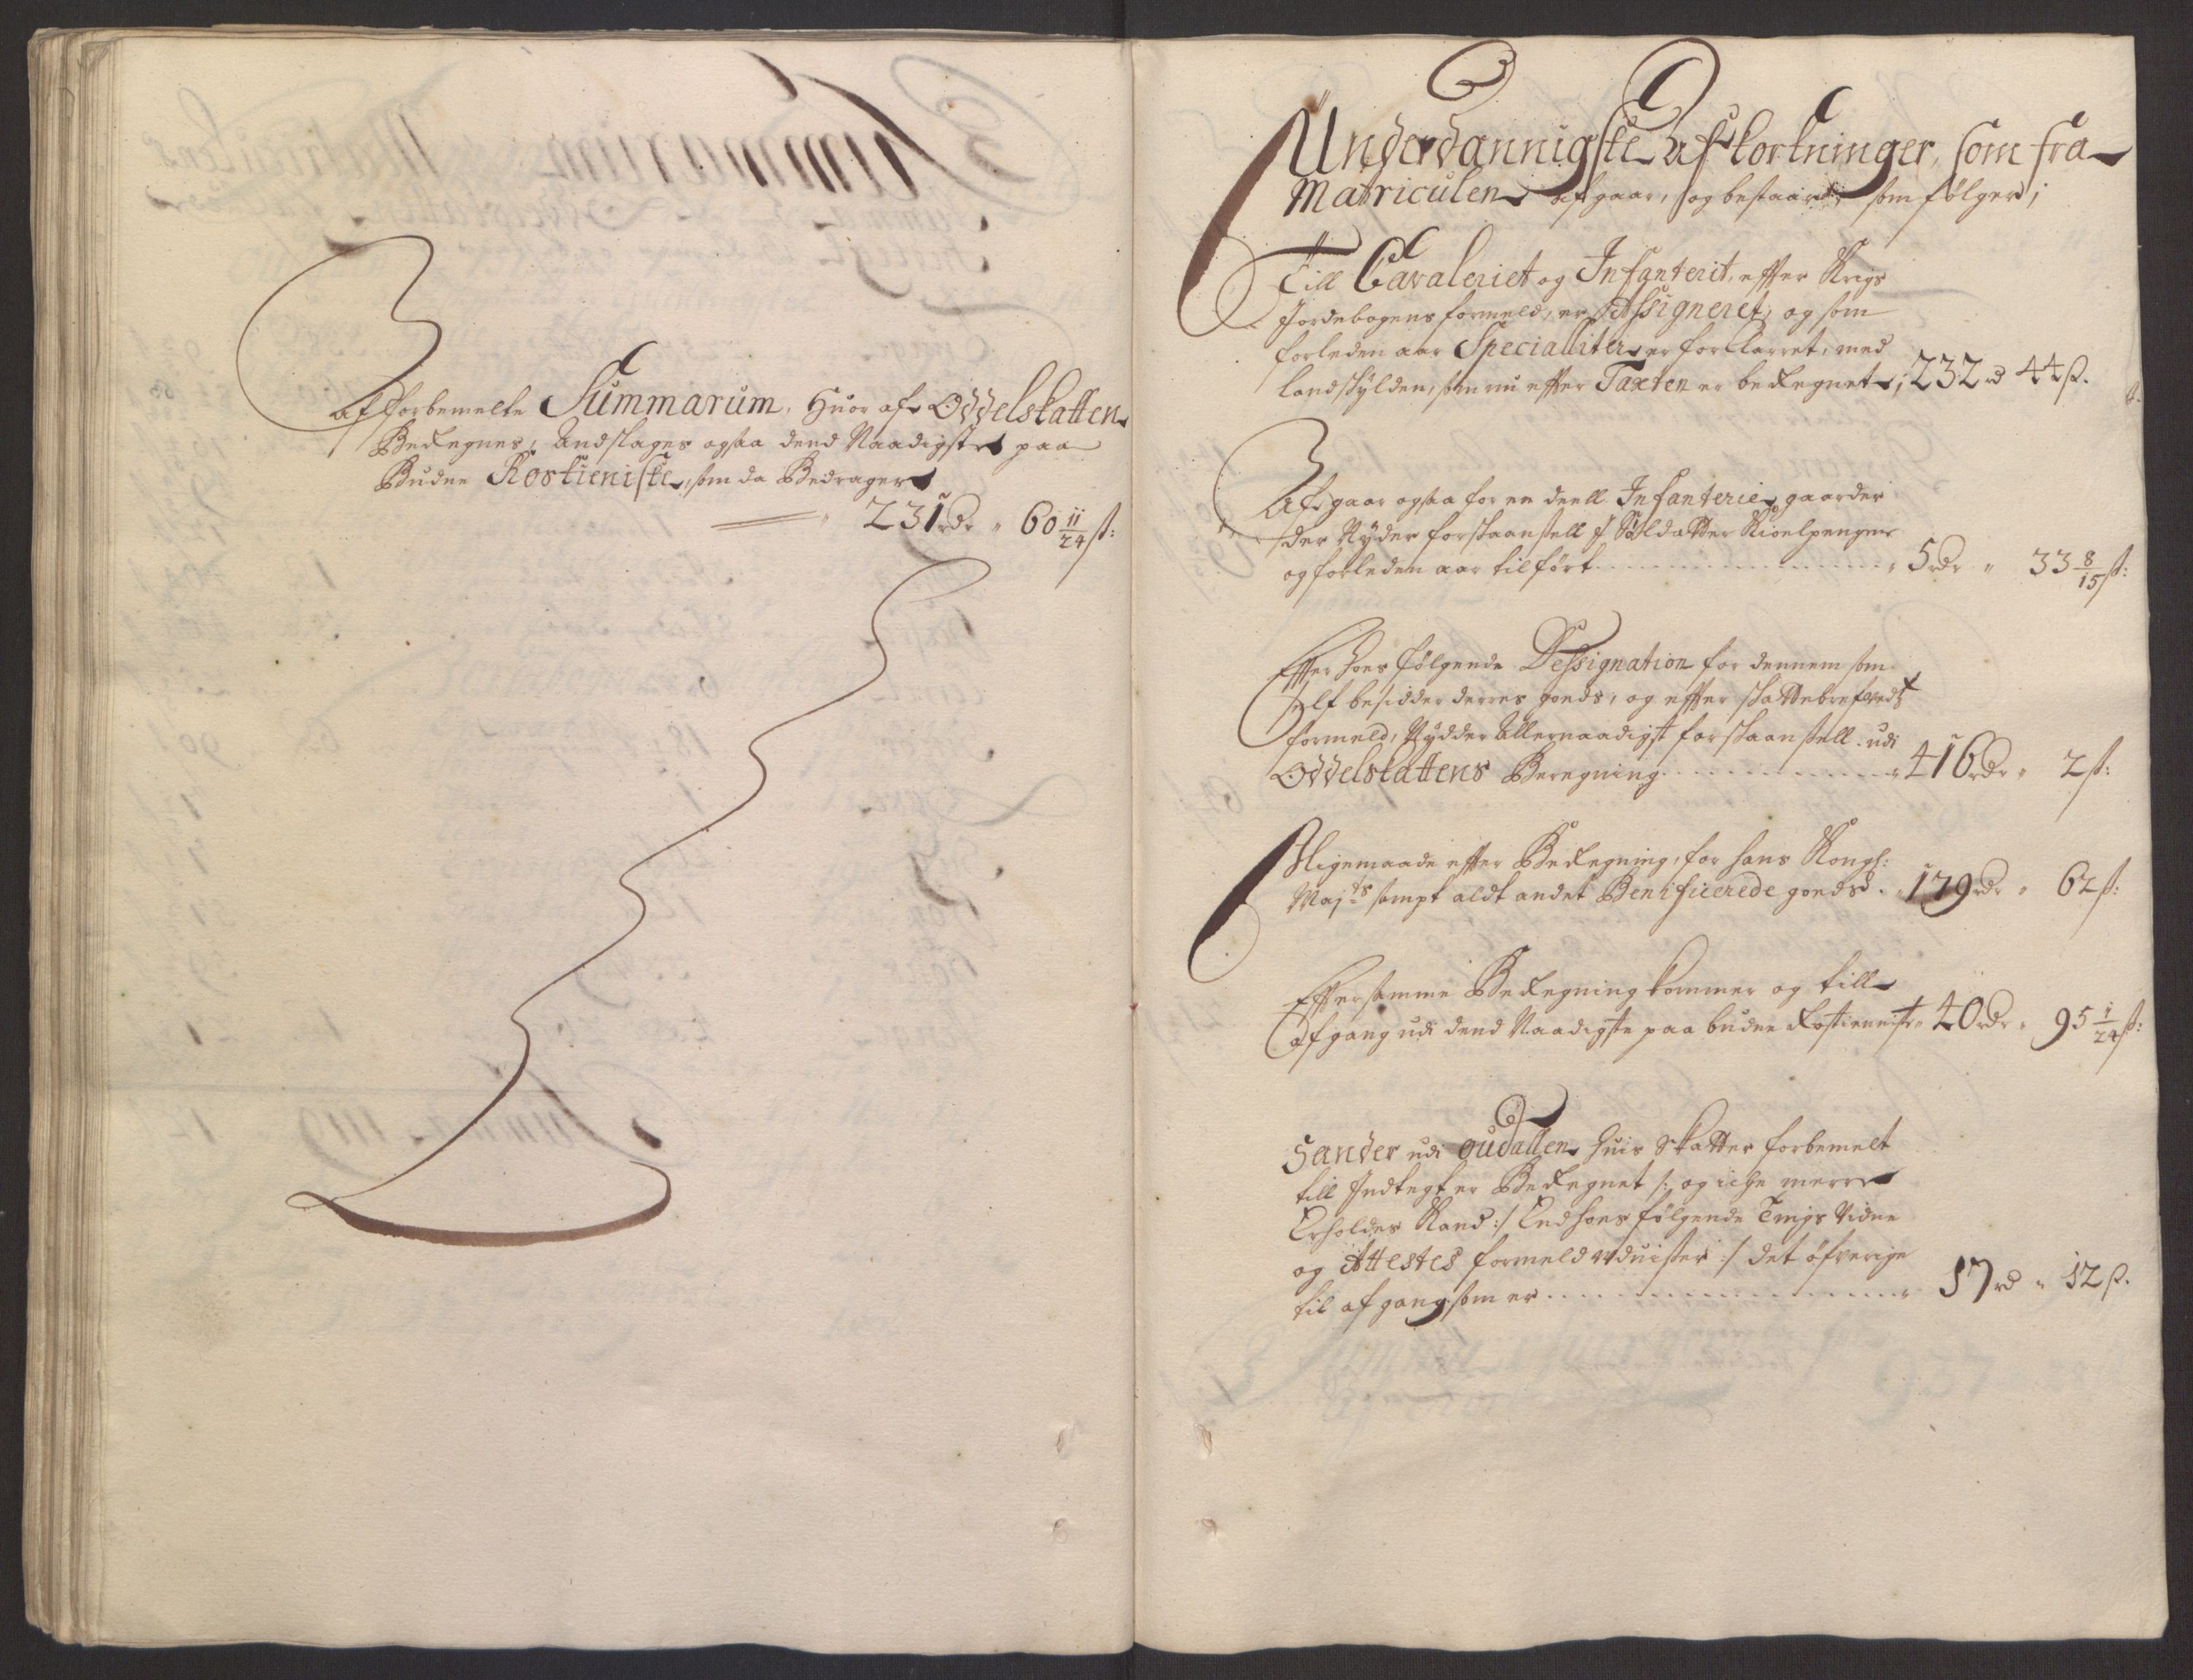 Af forbemelte Summarum, Huor af Oddelskatten
Beregnes, Andslages ogsaa dend Naadigste paa
Budne Rostieniste, som da Bedrager
231 rdr „ 60 11/24 s:
Underdannigste Afkortninger, som fra
Matriculen afgaar, og bestaar som følger;
Till Cavaleriet og Infanterit, effter Krigs
Jordebogens formeld, er Assigneret, og som
forleden aar Specialliter er forklarret, med
landskylden, som nu effter Taxten er beregnet, 232 rd 44 s.
Afgaar ogsaa for en deell Infanterie gaarder
der Nyder forskaansell f Soldatter Kioelpenger
og forleden aar tilført „ 5 rdr „ 33 8/15 s:
Effter hoes følgende Dessignation for dennem som
self besidder derres goeds, og effter skattebrefvedt
formeld, Nydder Allernaadigst forskaansell udi
Oddelskattens Beregning „ 416 rdr „ 2 s:
Ligemaade effter Beregning, for hans Kongl:
Majts sampt aldt andet Benificerede goeds „ 179 rdr „ 62 s:
Effter samme Beregning kommer og till
afgang udi dend Naadigste paa budne Rostienniste „ 40 rdr „ 95 1/24 s:
Sander udi Oudallen huis Skatter forbemelt
till Indtegt er Beregnet /: og iche merre
Erholdes Kand :/ End hoes følgende Tings Vidne
og Attestes formeld :/ det øfverige
til afgang som er „ 17 rd „ 12 s.